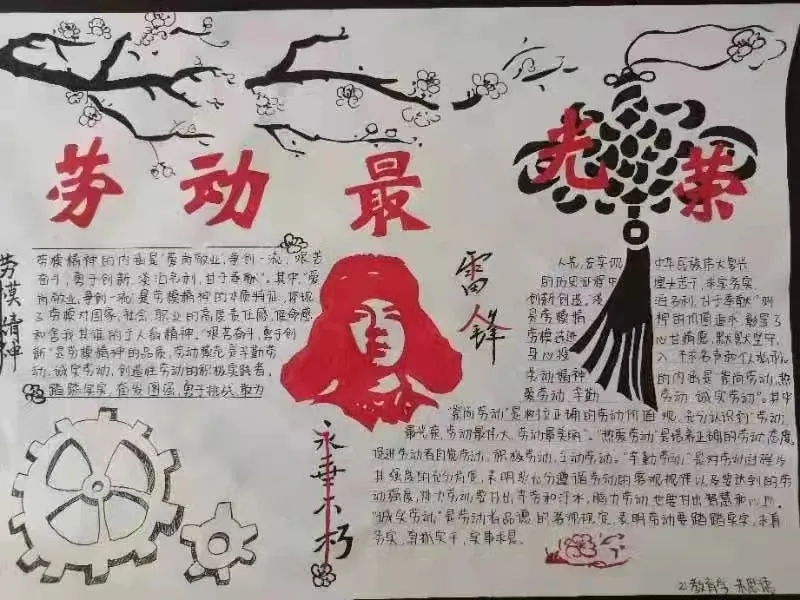 劳动最光荣
劳模精神
劳模精神的内涵是"爱岗敬业,争创一流,艰苦
奋斗,勇于创新,淡泊名利,甘于奉献"。其中,"爱
岗敬业,争创一流"是劳模精神的本质特征,体现
了劳模对国家、社会、职业的高度责任感、使命感
和舍我其谁的主人翁精神。"艰苦奋斗,勇于创
新"是劳模精神的品质,劳动模范勤
动,诚实劳动,创造性劳动的积极实践者,
踏踏实实,奋发图强,勇于挑战,敢为
雷锋
永垂不朽
人先,在实现 中华民族伟大复兴
的历史征程中 埋头苦干,求实务实
创新创造,淡 泊名利,甘于奉献"则
是劳模精 神的价值追求,彰显了
劳模 心甘情愿,默默坚守,
身心投 入,不求名声和个人私利
劳动精神 的内涵是"崇尚劳动,热
爱劳动,辛勤 劳动,诚实劳动"。其中
"崇尚劳动"是树立正确的劳动价值观,充分认识到"劳动
最光荣,劳动最伟大,劳动最美丽"。"热爱劳动"是培养正确的劳动态度,
促进劳动者自觉劳动,积极劳动,主动劳动。"辛勤劳动"是对劳动过程与
其强度的充分肯定,表明要充分遵循劳动的客观规律以及要达到的劳
动强度,体力劳动要付出辛劳和汗水,脑力劳动也要付出智慧和心血。
"诚实劳动"是劳动者品德的客观规定,表明劳动要踏踏实实,求真
务实,真抓实干,实事求是。
21教育学